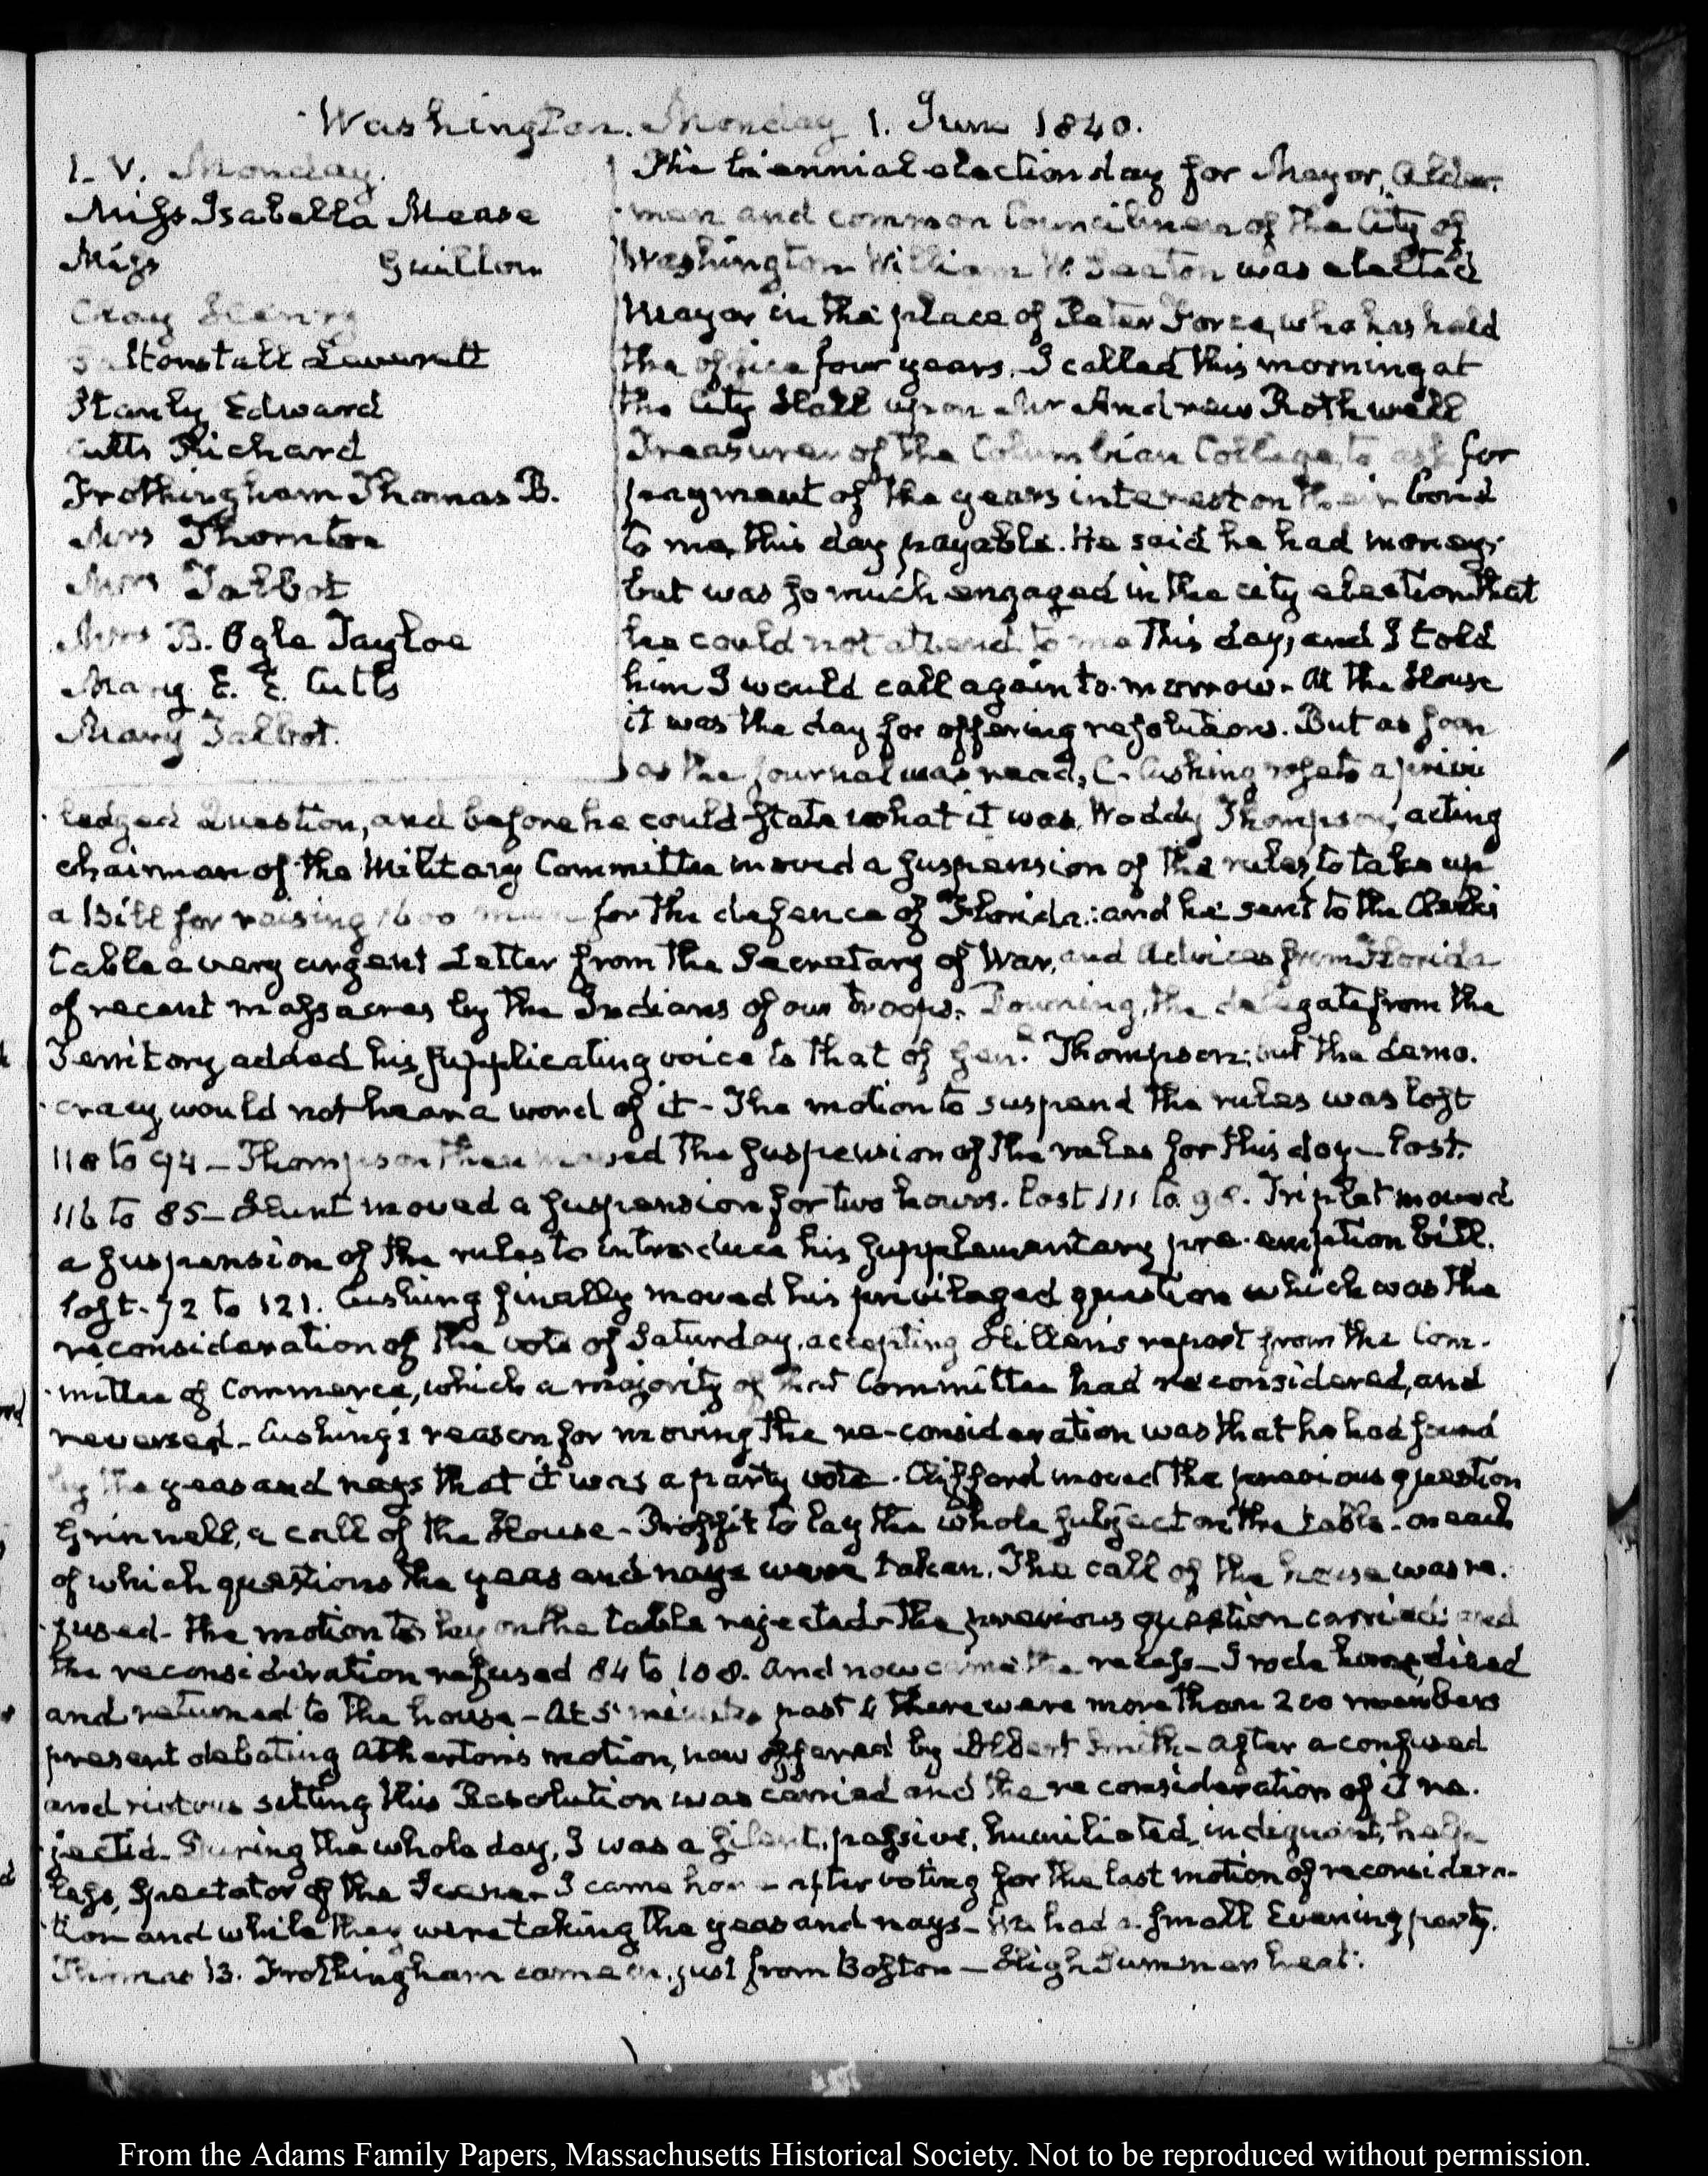 Washington. Monday 1. June 1840.
1. V. Monday.
Miss Isabella Mease
Miss Guillou
Clay Henry
Saltonstall Leverett
Stanly Edward
Cutts Richard
Frothingham Thomas B.
Mrs Thornton
Mrs Talbot
Mrs B. Ogle Tayloe
Mary E. E. Cutts
Mary Talbot.
The biennial election day for Mayor, Alder-
men and common Councilmen of the City of
Washington William W. Seaton was elected
Mayor in the place of Peter Force, who has held
the office four years. I called this morning at
the City Hall upon Mr Andrew Rothwell
Treasurer of the Columbian College, to ask for
payment of the years interest on their bond
to me, this day payable. He said he had money;
but was so much engaged in the city election that
he could not attend to me this day, and I told
him I would call again to-morrow. At the House
it was the day for offering resolutions. But as soon
as the journal was read, C. Cushing rose to a privi
ledged Question, and before he could state what it was, Waddy Thompson, acting
chairman of the Military Committee moved a suspension of the rules, to take up
a Bill for raising 1600 men for the defence of Florida: and he sent to the Clerk's
table a very urgent Letter from the Secretary of War, and Advices from Florida
of recent massacres by the Indians of our troops. Downing, the delegate from the
Territory, added his supplicating voice to that of Genl. Thompson; but the demo.
cracy would not hear a word of it - The motion to suspend the rules was lost
110 to 94 - Thompson then moved the suspension of the rules for this day - lost.
116 to 85 - Hunt moved a suspension for two hours. lost 111 to 98. Triplet moved
a suspension of the rules to introduce his supplementary pre-emption bill.
lost. 72 to 121. Cushing finally moved his privileged question which was the
reconsideration of the vote of Saturday, accepting Hillen's report from the Com-
mittee of Commerce, which a majority of that Committee had reconsidered, and
reversed - Cushing's reason for moving the re-consideration was that he had found
by the yeas and nays that it was a party vote. Clifford moved the previous question
Grinnell, a call of the House - Proffit to lay the whole subject on the table - on each
of which questions the yeas and nays were taken. The call of the house was re.
fused - the motion to lay on the table rejected - the previous question carried and
the reconsideration refused 84 to 108. and now came the recess - I rode home, dined
and returned to the house - At 5 minutes past 4 there were more than 200 members
present debating Atherton's motion, now offered by Albert Smith - After a confused
and riotous sitting this Resolution was carried and the reconsideration of it re.
jected. During the whole day, I was a silent, passive, humiliated, indignant, help-
less, Spectator of the Scene - I came home after voting for the last motion of reconsidera-
tion and while they were taking the yeas and nays - We had a small Evening party.
Thomas B. Frothingham came in, just from Boston - High Summer heat.
From the Adams Family Papers, Massachusetts Historical Society. Not to be reproduced without permission.